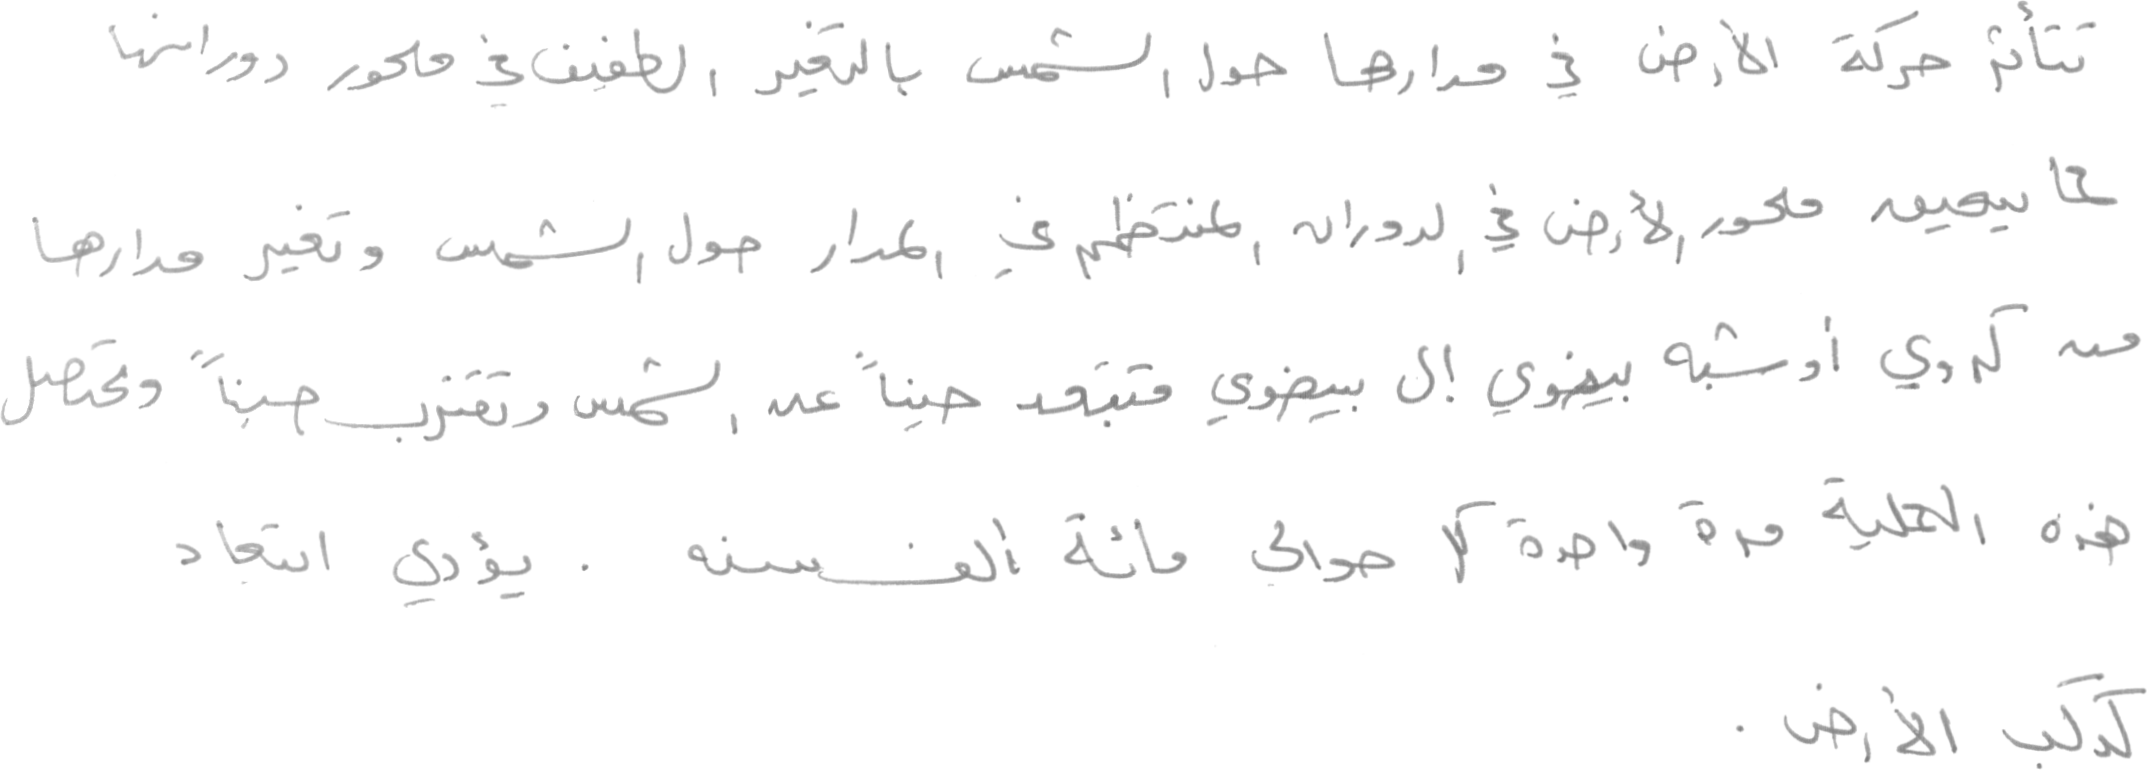 تتأثر حركة الأرض في مدارها حول الشمس بالتغير الطفيف في محور دورانها
مما يعيق محور الأرض في الدوران المنتظم في المدار حول الشمس وتغير مدارها
من كروي أو شبه بيضوي إلى بيضوي فتبتعد حيناً عن الشمس وتقترب حيناً وتحصل
هذه العملية مرة واحدة كل حوالي مائة ألف سنه . يؤدي ابتعاد
كوكب الأرض .